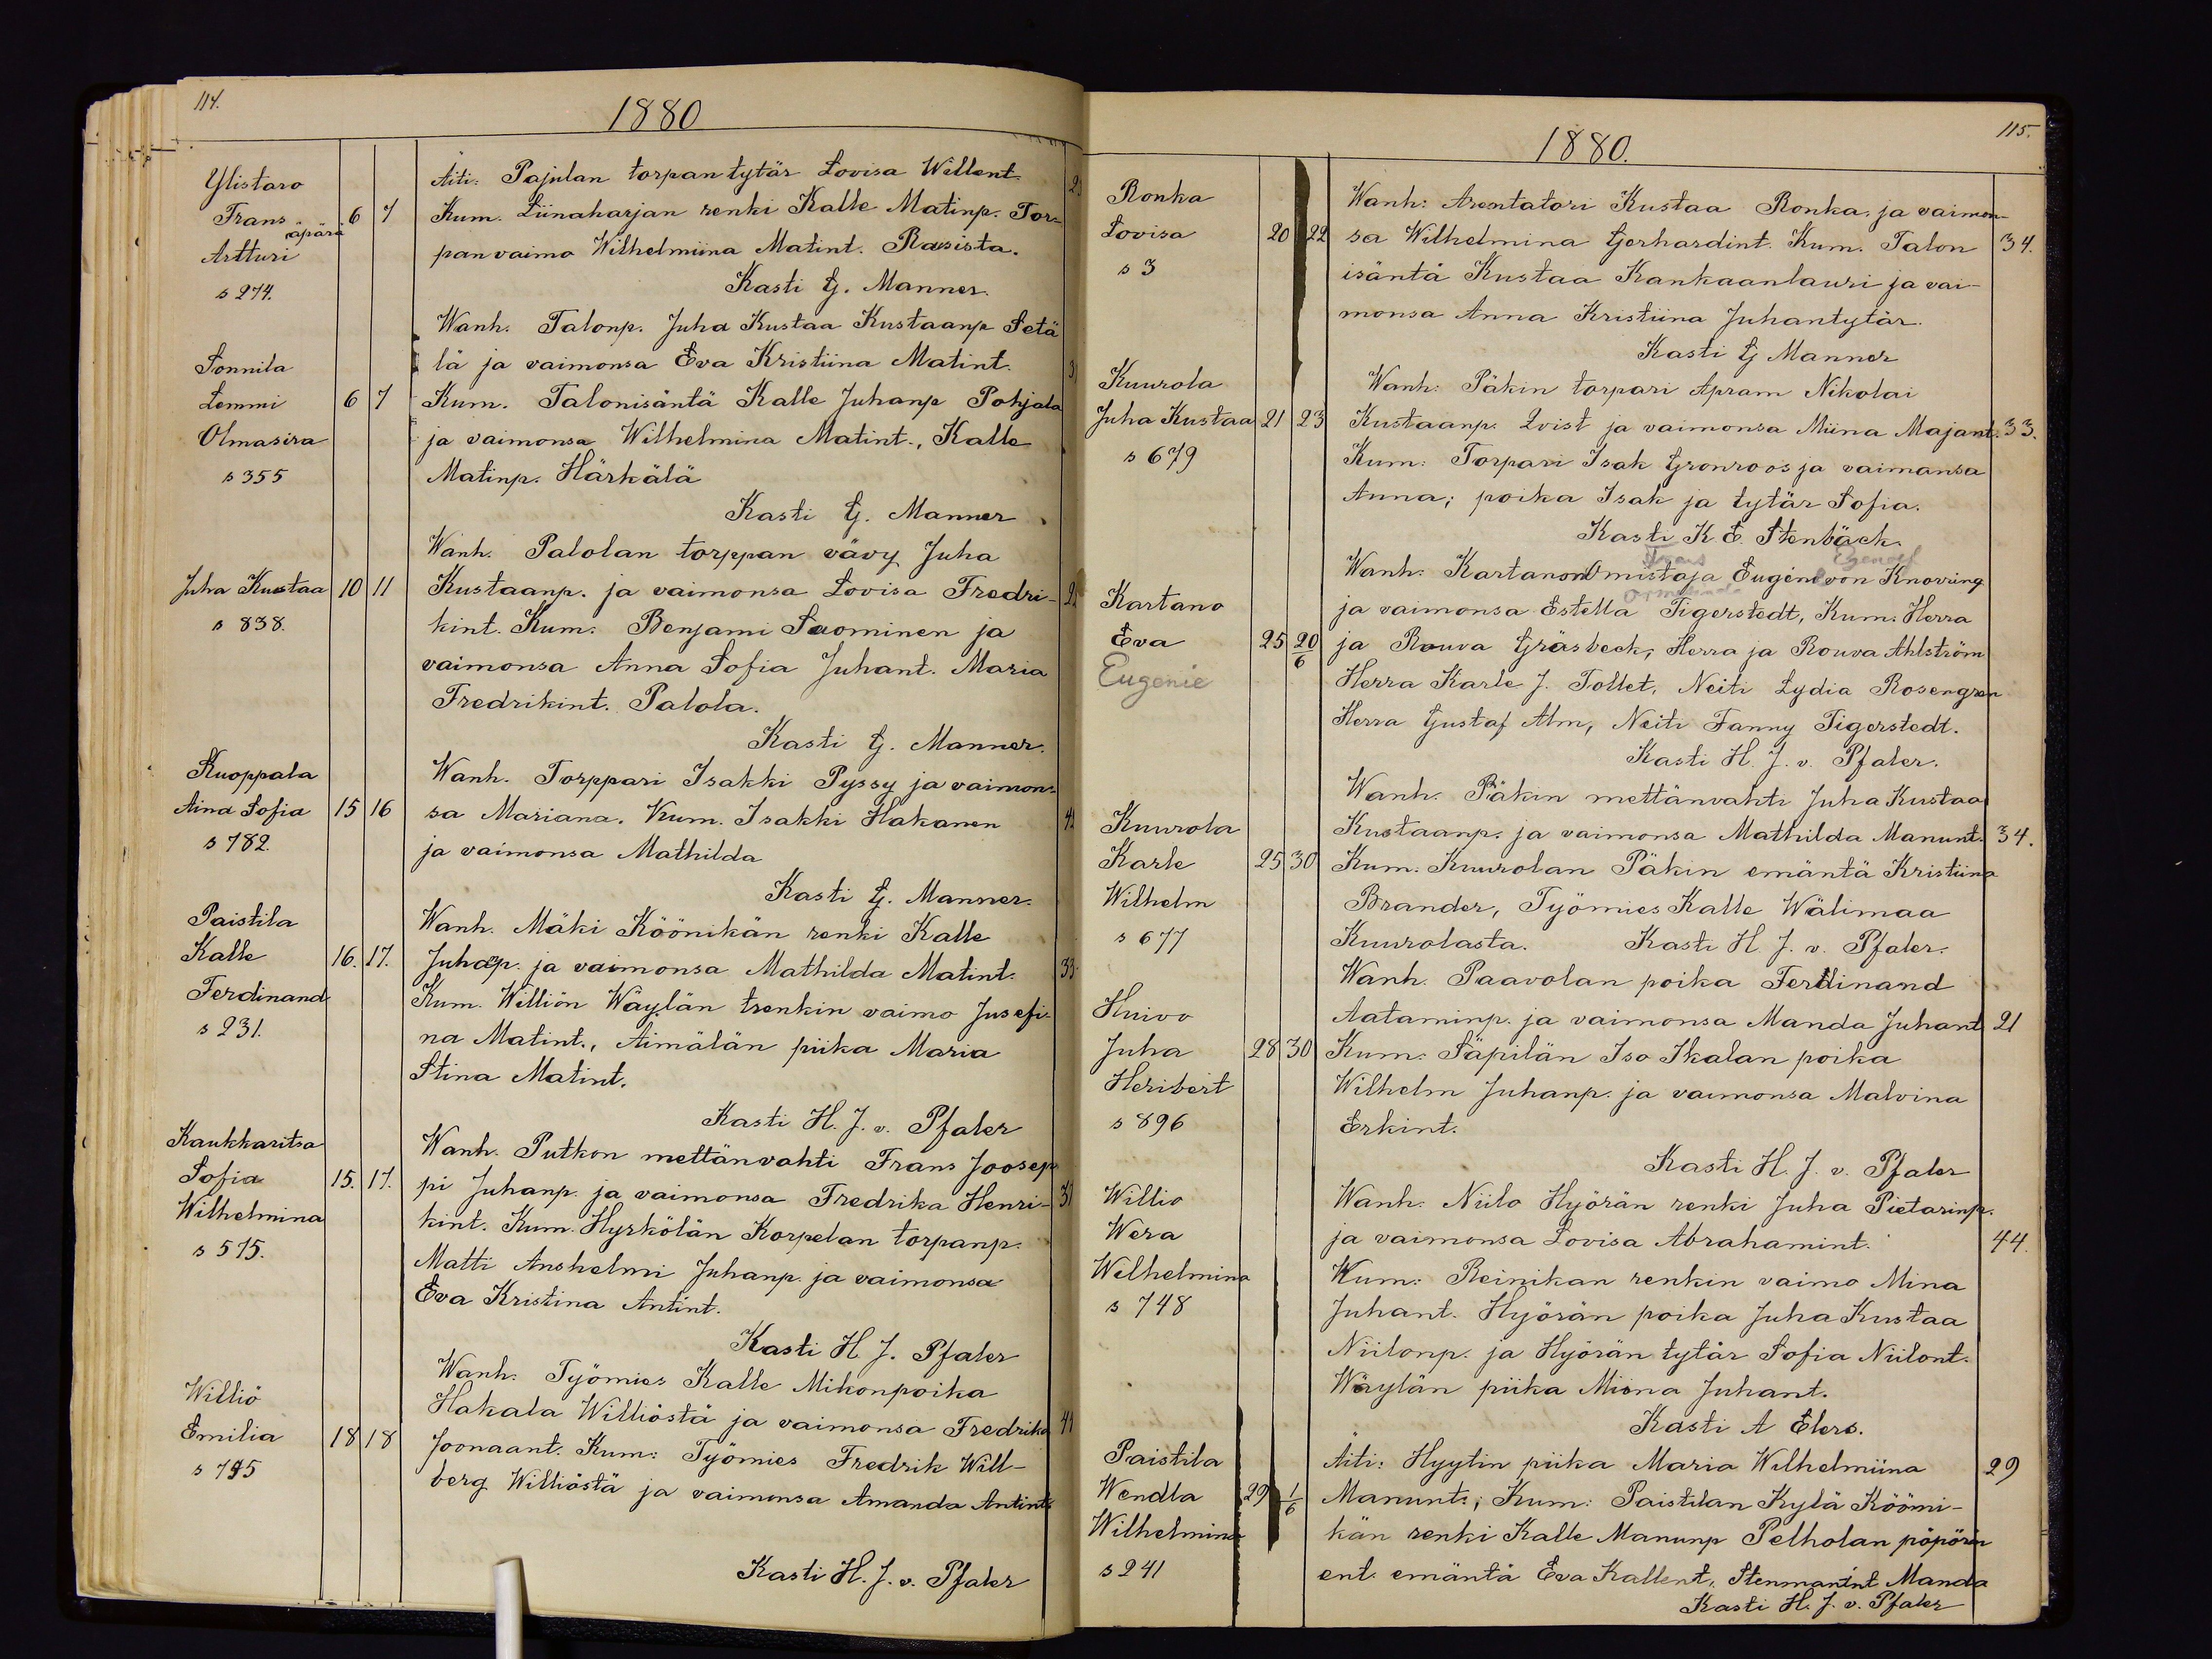 114.
1880
Ylistaro
Frans
äpärä
Artturi
s 274.
6 7
Äiti: Pajulan torpantytär Lovisa Willent.
Kum. Liinaharjan renki Kalle Matinp. Tor-
panvaimo Wilhelmiina Matint. Rasista.
Kasti G. Manner.
Sonnila
Lemmi
Olmasira
s 355
6 7
Wanh. Talonp. Juha Kustaa Kustaanp Setä
lä ja vaimonsa Eva Kristiina Matint.
Kum. Talonisäntä Kalle Juhanp Pohjala
ja vaimonsa Wilhelmina Matint., Kalle
Matinp. Härkälä
Kasti G. Manner
Juha Kustaa
s 838.
10 11
Wanh. Palolan torppan vävy Juha
Kustaanp. ja vaimonsa Lovisa Fredri-
kint. Kum. Benjami Suominen ja
vaimonsa Anna Sofia Juhant. Maria
Fredrikint. Palola.
Kasti G. Manner.
Kuoppala
Aina Sofia
s 782.
15 16
Wanh. Torppari Isakki Pyssy ja vaimon-
sa Mariana. Kum. Isakki Hakanen
ja vaimonsa Mathilda
Kasti G. Manner.
Paistila
Kalle
Ferdinand
s 231.
16. 17.
Wanh. Mäki Köönikän renki Kalle
Juhanp. ja vaimonsa Mathilda Matint.
33.
Kum. Williön Wäylän trenkin vaimo Jusefi-
na Matint., Aimälän piika Maria
Stina Matint.
Kasti H. J. v. Pfaler
Kaukkaritsa
Sofia
Wilhelmina
s 575.
15. 17.
Wanh. Putkon mettänvahti Frans Joosep
pi Juhanp. ja vaimonsa Fredrika Henri-
kint. Kum. Hyrkölän Korpelan torpanp.
Matti Anshelmi Juhanp. ja vaimonsa
Eva Kristina Antint.
Kasti H. J. Pfaler
Williö
Emilia
s 795
18 18
Wanh. Työmies Kalle Mikonpoika
Hakala Williöstä ja vaimonsa Fredrika
Joonaant. Kum: Työmies Fredrik Will-
berg Williöstä ja vaimonsa Amanda Antint
Kasti H. J. v. Pfaler
115.
1880.
Ronka
Lovisa
s 3
20 22
Wanh: Arentatori Kustaa Ronka, ja vaimon-
sa Wilhelmina Gerhardint. Kum. Talon
34.
isäntä Kustaa Kankaanlauri ja vai-
monsa Anna Kristiina Juhantytär.
Kasti G Manner
Kuurola
Juha Kustaa
s 679
21 23
Wanh: Päkin torpari Apram Nikolai
Kustaanp. Qvist ja vaimonsa Miina Majant.
33.
Kum: Torpari Isak Gronroos ja vaimansa
Anna; poika Isak ja tytär Sofia.
Kasti K E. Stenbäck.
Kartano
Eva
Eugenie
25 20/6
Frans
Wanh: KartanonOmistaja Eugén von Knorring
ja vaimonsa Estella Tigerstedt, Kum: Herra
ja Rouva Gräsbeck, Herra ja Rouva Ahlström
Herra Karle J. Tollet, Neiti Lydia Rosengren
Herra Gustaf Alm, Neiti Fanny Tigerstedt.
Kasti H. J. v. Pfaler.
Kuurola
Karle
Wilhelm
s 677
25 30
Wanh. Päkin mettänvahti Juha Kustaa
Kustaanp. ja vaimonsa Mathilda Manunt.
34.
Kum: Kuurolan Päkin emäntä Kristiina
Brander, Työmies Kalle Wälimaa
Kuurolasta. Kasti H. J. v. Pfaler.
Huivo
Juha
Heribert
s 896
28 30
Wanh. Paavolan poika Ferdinand
Aataminp. ja vaimonsa Manda Juhant
21
Kum: Säpilän Iso Ikalan poika
Wilhelm Juhanp. ja vaimonsa Malvina
Erkint.
Kasti H. J. v. Pfaler
Willio
Wera
Wilhelmina
s 748
Wanh: Niilo Hyörän renki Juha Pietarinp.
ja vaimonsa Lovisa Abrahamint.
44.
Kum: Reinikan renkin vaimo Mina
Juhant. Hyörän poika Juha Kustaa
Niilonp. ja Hyörän tytär Sofia Niilont.
Wäylän piika Miina Juhant.
Kasti A Elers.
Paistila
Wendla
Wilhelmina
s 241
29 1/6
Äiti: Hyytin piika Maria Wilhelmiina
29
Manunt; Kum: Paistilan Kylä Kööni-
kän renki Kalle Manunp Pelholan pöpörin
ent. emäntä Eva Kallent, Stenmanint Manda
Kasti H. J. v. Pfaler